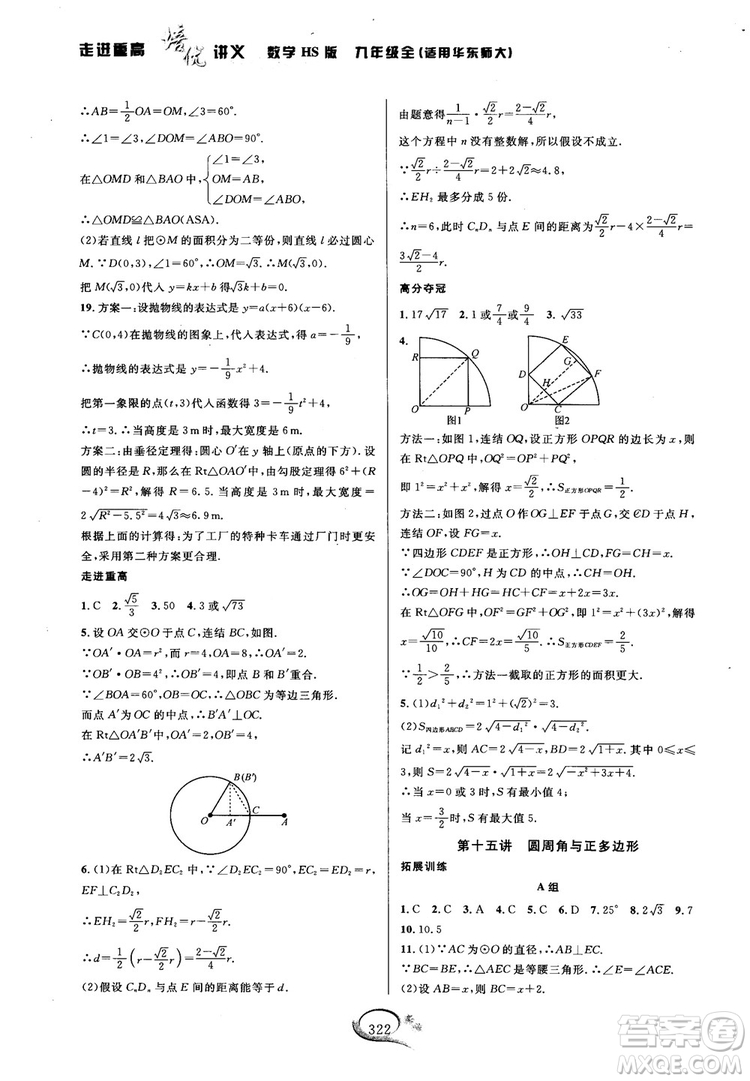 走进重高 培优 讲义 数学 HS 版 九年级全(适用华东师大)
∴AB=1/2 OA=OM,∠3=60°.
∴∠3=∠1,∠DOM=∠ABO=90°.
在△OMD和△BAO中,{∠1=∠3, OM=AB, ∠DOM=∠ABO,
∴△OMD≌△BAO(ASA).
(2)若直线 l 把⊙M 的面积分为二等份,则直线 l 必过圆心
M.∵D(0,3),∠1=60°,∴M(√3,0).
把 M(√3,0)代入 y=kx+b 得 k=-√3.
19. 方案一:设抛物线的表达式是 y=a(x+6)(x-6).
∵C(0,4)在抛物线的图象上,代入表达式,得 a=-1/9.
∴抛物线的表达式是 y=-1/9 x²+4.
把第一象限的点(t,3)代入函数得 3=-1/9 t²+4.
∴t=3. ∴当高度是 3 m 时,最大宽度是 6 m.
方案二:由垂径定理得:圆心 O′在 y 轴上(原点的下方). 设
圆的半径是 R,那么在 Rt△OAO′中,由勾股定理得 6²+(R
-4)²=R²,解得 R=6.5. 当高度是 3 m 时,最大宽度=
2√(R²-5.5²)=4√3≈6.9 m.
根据上面的计算得:为了工厂的特种卡车通过厂门时更安
全,采用第二种方案更合理.
走进重高
1. C 2. √5/3 3. 50 4. 3 或√73
5. 设 OA 交⊙O 于点 C,连结 BC,如图.
∵OA′·OA=r²,而 r=4,OA=8,∴OA′=2.
∵OB′·OB=4²,∴OB′=4,即点 B 和 B′重合.
∵∠BOA=60°,∴△OBC 为等边三角形.
而点 A′为 OC 的中点,∴B′A′⊥OC.
在 Rt△OA′B′中,∠A′OB′=60°,OB′=4,
∴A′B′=2√3.
B(B′)
O A′ C A
6. (1)在 Rt△D₂EC₂ 中,∵∠D₂EC₂=90°,EC₂=ED₂=r,
EF⊥C₂D₂,
∴EH₂=√2/2 r,FH₂=r-√2/2 r.
∴d=1/2(r-√2/2 r)=(2-√2)/4 r.
(2)假设 CₙDₙ 与点 E 间的距离能等于 √2/2 r,
由题意得 1/(n-1)·√2/2 r=(2-√2)/2 r,
这个方程中 n 没有整数解,所以假设不成立.
∵√2/2 r÷(2-√2)/2 r=2+2√2≈4.8,
∴EH₂ 最多分成 5 份.
∴n=6,此时 CₙDₙ 与点 E 间的距离为 √2/2 r-4×(2-√2)/2 r=
(3√2-4)/2 r.
高分夺冠
1. 17√17 2. 1 或 7/4 或 9/4 3. √33
4.
R Q O P 图1
E G D H F O C 图2
方法一:如图 1,连结 OQ,设正方形 OPQR 的边长为 x,
则在 Rt△OPQ 中,OQ²=OP²+PQ²,1=x²+x²,
即 1=x²+x²,解得 x²=1/2,即 S正方形OPQR=1/2.
方法二:如图 2,过点 O 作 OG⊥EF 于点 G,交 CD 于点 H,
连结 OF,设 FG=x.
∵四边形 CDEF 是正方形,∴OH⊥CD,∴FG=CH=x.
∵∠DOC=90°,CH=DH,∴CD=2OH=2x.
∴OG=OH+HG=OH+CF=3x.
在 Rt△OFG 中,OF²=GF²+OG²,即 1=x²+(3x)²,解得
x=√10/10,∴CF=2x=√10/5,∴S正方形CDEF=2/5.
∵1/2>2/5,∴方法一截取的正方形的面积更大.
5. (1)d₁²+d₂²=3.
(2)S四边形ABCD=2√(4-d₁²)·√(4-d₂²).
记 d₁²=x,则 S=2√(4-x)·√(1+x). ∵0≤x≤3,
∴S=2√(4-x)·√(1+x)=2√(-x²+3x+4).
∴当 x=0 或 3 时,S 有最小值 4;
当 x=3/2 时,S 有最大值 5.
第十五讲 圆周角与正多边形
拓展训练
A 组
1. C 2. C 3. A 4. C 5. C 6. D 7. 25° 8. 2√3 9. 7
10. 10.5
11. (1)∵AC 为⊙O 的直径,∴∠ABC=90°.
∵BC=BE,∴△CBE 是等腰三角形,∴∠E=45°.
322
答案圈
MXQE.COM